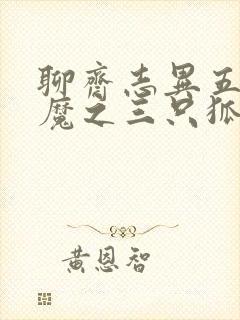 聊齋志異五
魔之三只狐
黄恩智